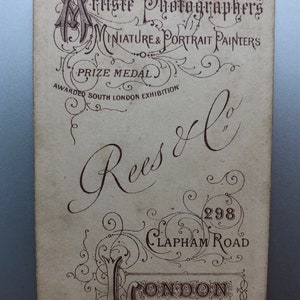 Artiste Photographers
Miniature & Portrait Painters
Prize Medal
Awarded South London Exhibition
Rees & Co
298
Clapham Road
London